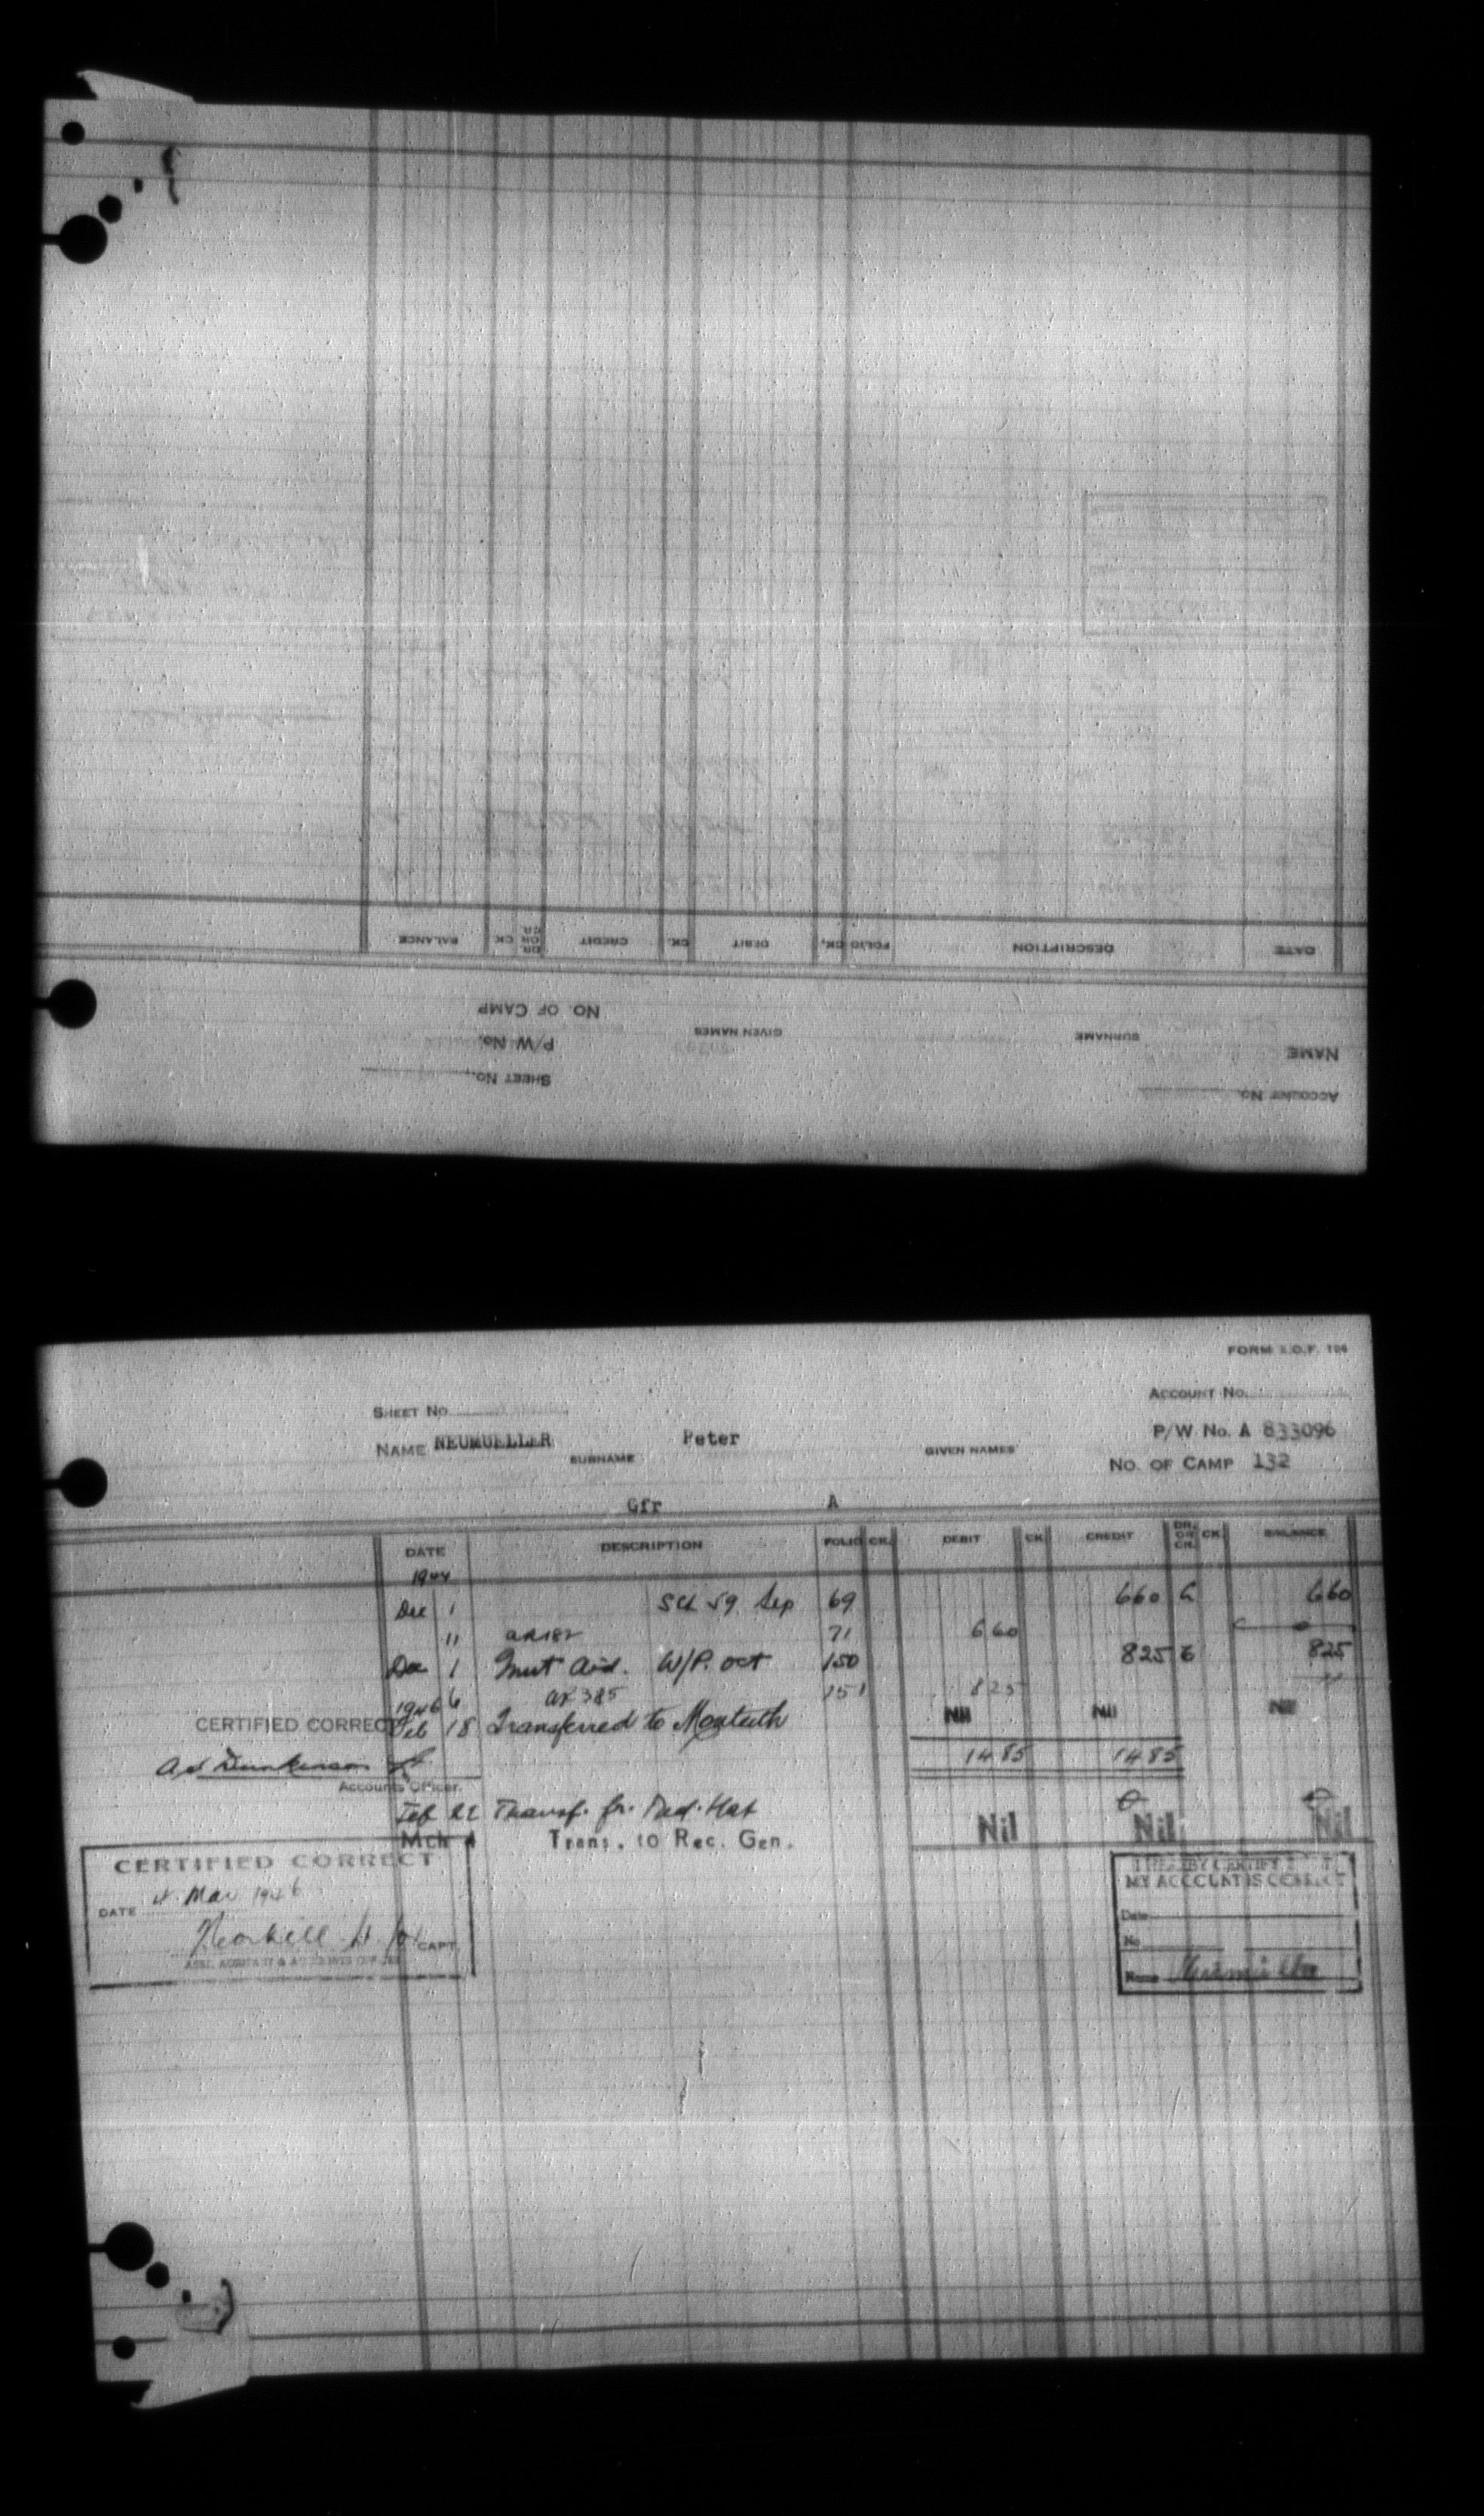 DATE DESCRIPTION FOLIO CK. DEBIT CK. CREDIT DR. OR CR. CK BALANCE
NO. OF CAMP
P/W No.
SHEET No.
NAME SURNAME GIVEN NAMES
ACCOUNT No.
FORM 106
ACCOUNT No.
SHEET No
P/W No. A 833096
NAME NEUMUELLER SURNAME Peter GIVEN NAMES
NO. OF CAMP 132
Gfr A
DATE DESCRIPTION FOLIO CK. DEBIT CK CREDIT DR. OR CR. CK BALANCE
1944
Dec 1 Sep 69 660 660
11 71 660
Dec 1 Aid. W/P. oct 150 825 825
6 385 151 825
1946
CERTIFIED CORRECT
Feb 18 Transferred to Monteith Nil Nil Nil
1485 1485
Accounts Officer.
Feb 22 Transf. fr. Med. Hat
Nil Nil Nil
Mch 4 Trans. to Rec. Gen.
CERTIFIED CORRECT
DATE 4 Mar 1946
CAPT
I HEREBY CERTIFY THAT
MY ACCOUNT IS CORRECT
Date
No
Name Neumüller